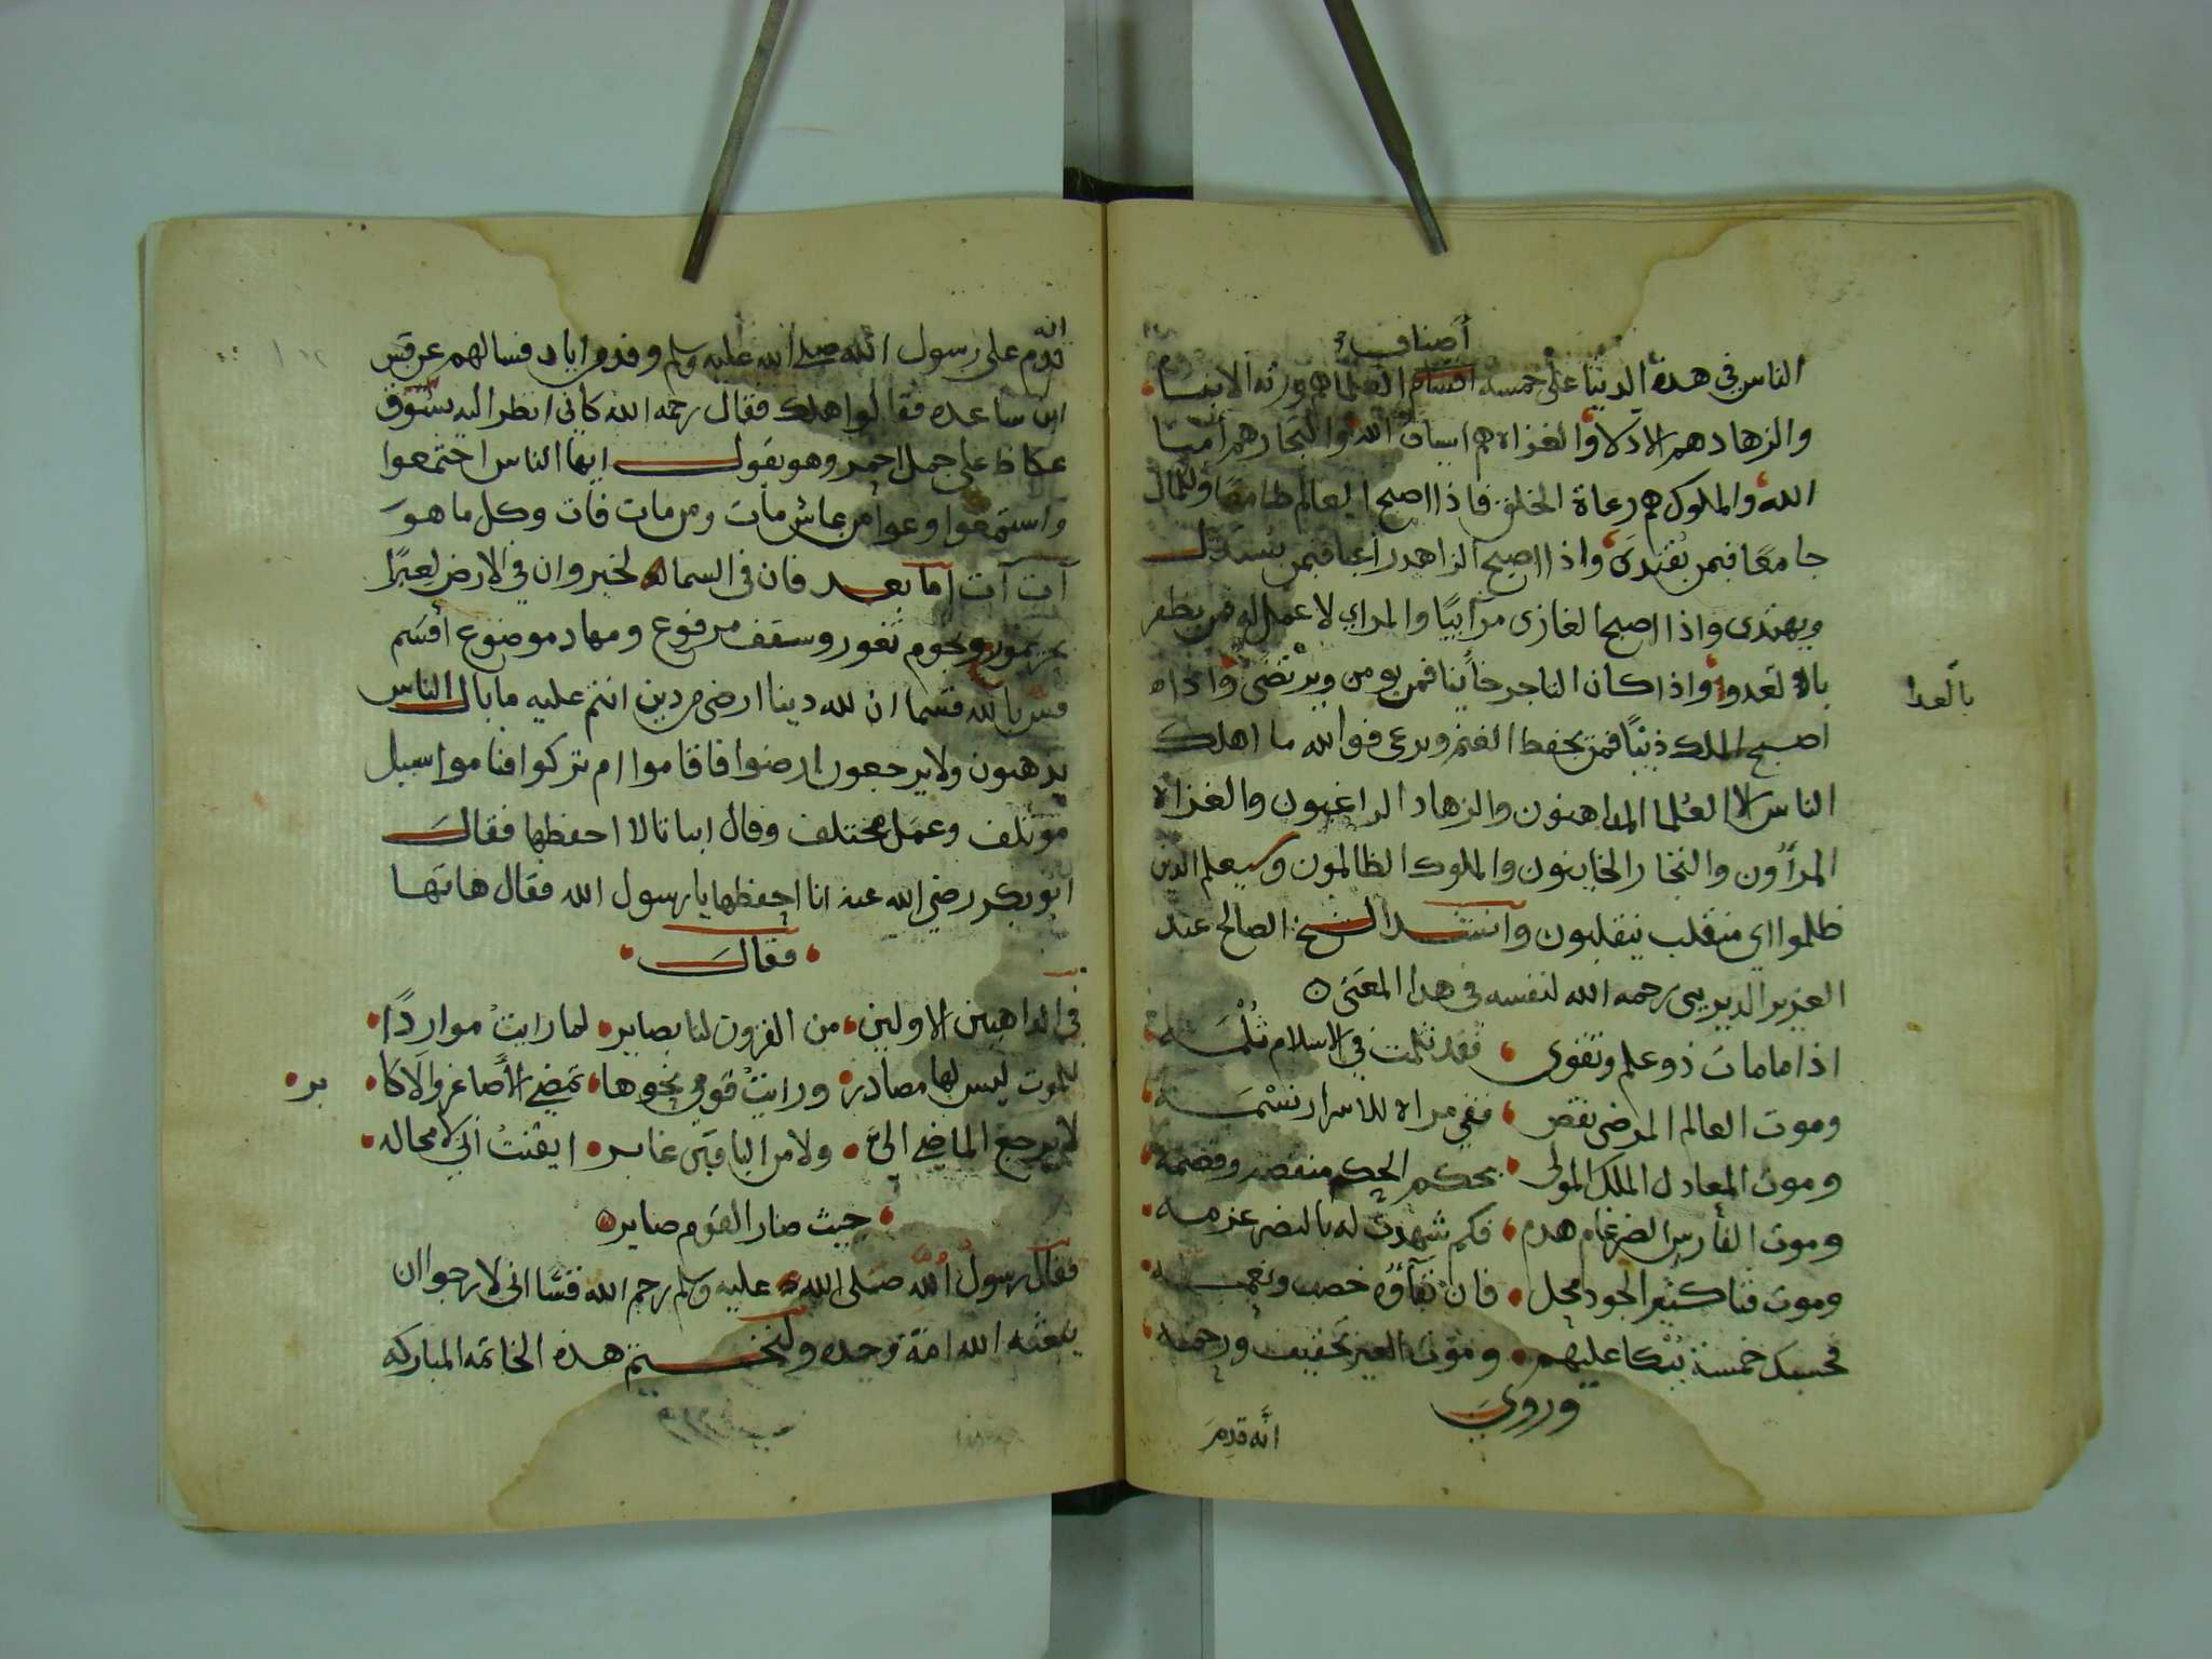 أصناف
الناس في هذه الدنيا على خمسة اقسام العلما هم ورثه الانبيا
والزهاد هم الادلا والغزاه هم اسياف الله والتجار هم امنا
الله والملوك هم رعاة الخلق فاذا اصبح العالم طامعا وللمال
جامعًا فبمن يقتدى واذا اصبح الزاهد راغبا فبمن يستدل
ويهتدى واذا اصبح الغازى مرآييًا والمراي لا عمل له فمن يظفر
بالعدو واذا كان التاجر خآينا فمن يومن ويرتضى واذا
بالعدا
اصبح الملك ذيبًا فمن يحفظ الغنم ويرعى فوالله ما اهلك
الناس الا العُلما المداهنون والزهاد الراغبون والغزاه
المرآؤن والتجار الخاينون والملوك الظالمون وسيعلم الذين
ظلموا اي منقلب ينقلبون وانشد الشيخ الصالح عبد
العزيز الديريني رحمه الله لنفسه فى هذا المعنى
اذا ما مات ذو علم وتقوى فقد ثلمت في الاسلام ثُلْمَه
وموت العالم المرضى نقص ففي مراه للاسرار نسْمَه
وموت العادل الملك المولى بحكم الحكم منقصه وقصمه
وموت الفارس الضرغام هدم فكم شهدت له بالنصر عزمه
وموت فتا كثير الجود محل فان بقآؤه خصب ونعمه
فحسبك خمسة يُبْكا عليهم وموت الغير تخفيف ورحمه
وروي
انَّه قدِمَ
انه
قدم على رسول الله صلى الله عليه وسلم وفدمن اياد فسالهم عن قس
ابن ساعده فقالوا هلك فقال رحمه الله كاني انظر اليه بسُوق
عكاظ على جمل احمر وهو يقول ايها الناس اجتمعوا
واستمعوا وعوا من عاش مات ومن مات فات وكل ما هوَ
آت آت اما بعد فان فى السماء لخبر وان في الارض لعِبَرًا
بحر يمور ونجوم تغور وسقف مرفوع ومهاد موضوع أقسَم
قسّ بالله قسما ان لله دينا ارضى من دين انتم عليه ما بال الناس
يذهبون ولا يرجعون ارضوا فاقاموا ام تركوا فناموا سبل
موتلف وعمَل مختلف وقال ابياتا لا احفظها فقال
ابو بكر رضي الله عنه انا احفظها يا رسول الله فقال هاتها
فقال
في الذاهبين الاولين من القرون لنا بصاير لما رايتُ مواردًا
للموت ليس لها مصادر ورايتُ قومي نحوها تمضي الأصاغر والاكا بر
لا يرجع الماضي الىَّ ولا من الباقين غابر ايقنتُ اني لا محاله
حيث صار القوم صاير
فقال رسولُ اللهُ صَلى الله عليه وسلم رحم الله قسًّا انى لا رجوا ان
يبعثه الله امّة وحده ولنختم هذه الخاتمه المباركه